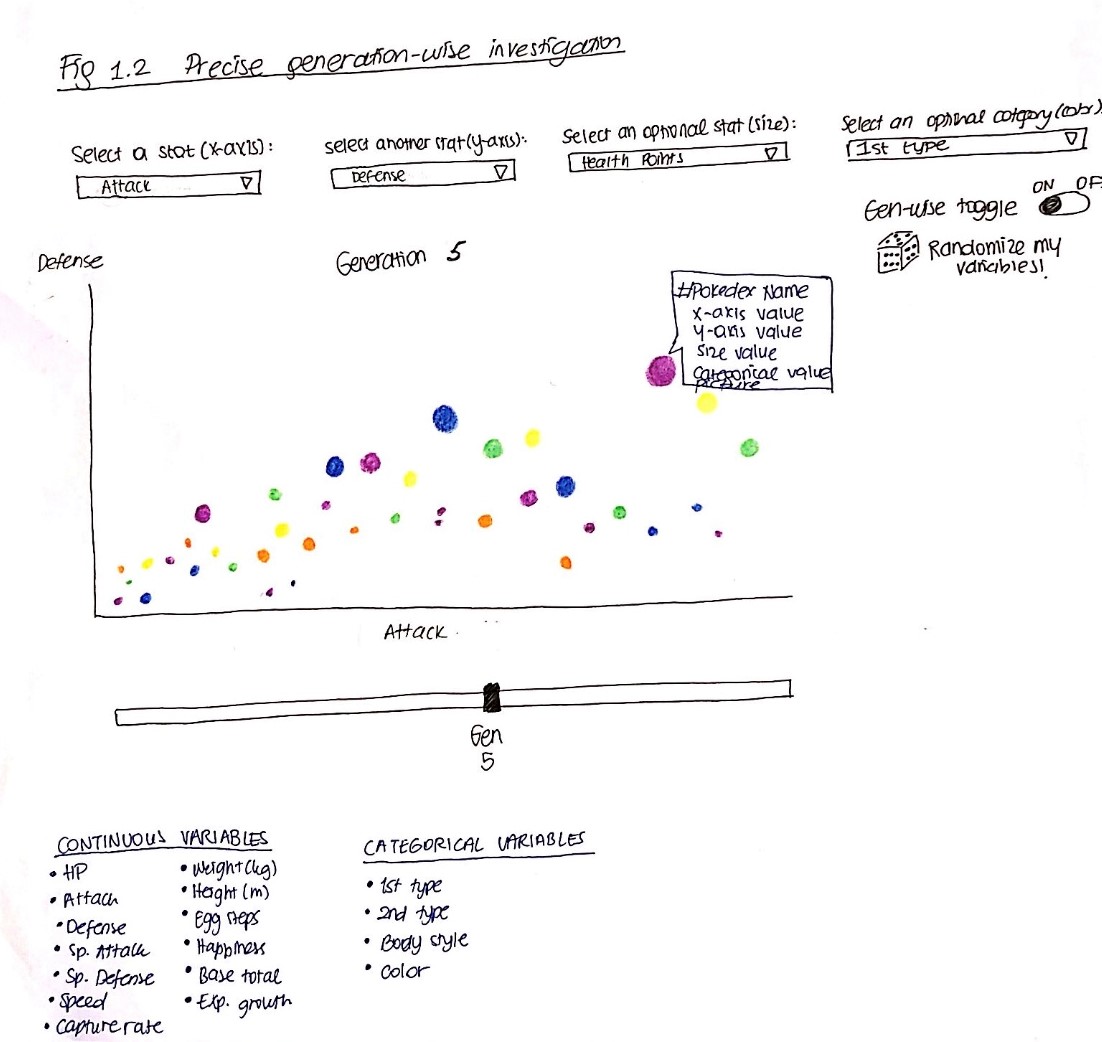 Fig 1.2 Precise generation-wise investigation
Select a stat (x-axis):
Attack
Select another stat (y-axis):
Defense
Select an optional stat (size):
Health Points
Select an optional category (color):
1st type
ON OFF
Gen-wise toggle
Randomize my
variables!
Defense
Generation 5
#Pokedex Name
x-axis value
y-axis value
Size value
Categorical value
picture
Attack
Gen
5
CONTINUOUS VARIABLES
• HP
• Attack
• Defense
• Sp. Attack
• Sp. Defense
• Speed
• Capture rate
• Weight (kg)
• Height (m)
• Egg steps
• Happiness
• Base total
• Exp. growth
CATEGORICAL VARIABLES
• 1st type
• 2nd type
• Body style
• Color